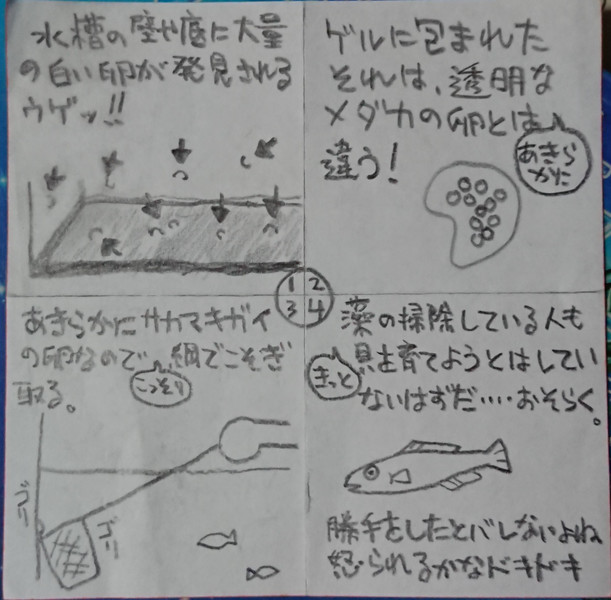 水槽の壁や底に大量
の白い卵が発見される
ウゲッ!!
ゲルに包まれた
それは、透明な
メダカの卵とは
違う!
あきら
かに
1 2
3 4
あきらかにサカマキガイ
の卵なので網でこそぎ
取る。
こっそり
ゴリ
ゴリ
藻の掃除している人も
貝を育てようとはしてい
ないはずだ‥‥おそらく。
きっと
勝手をしたとバレないよね
怒られるかなドキドキ